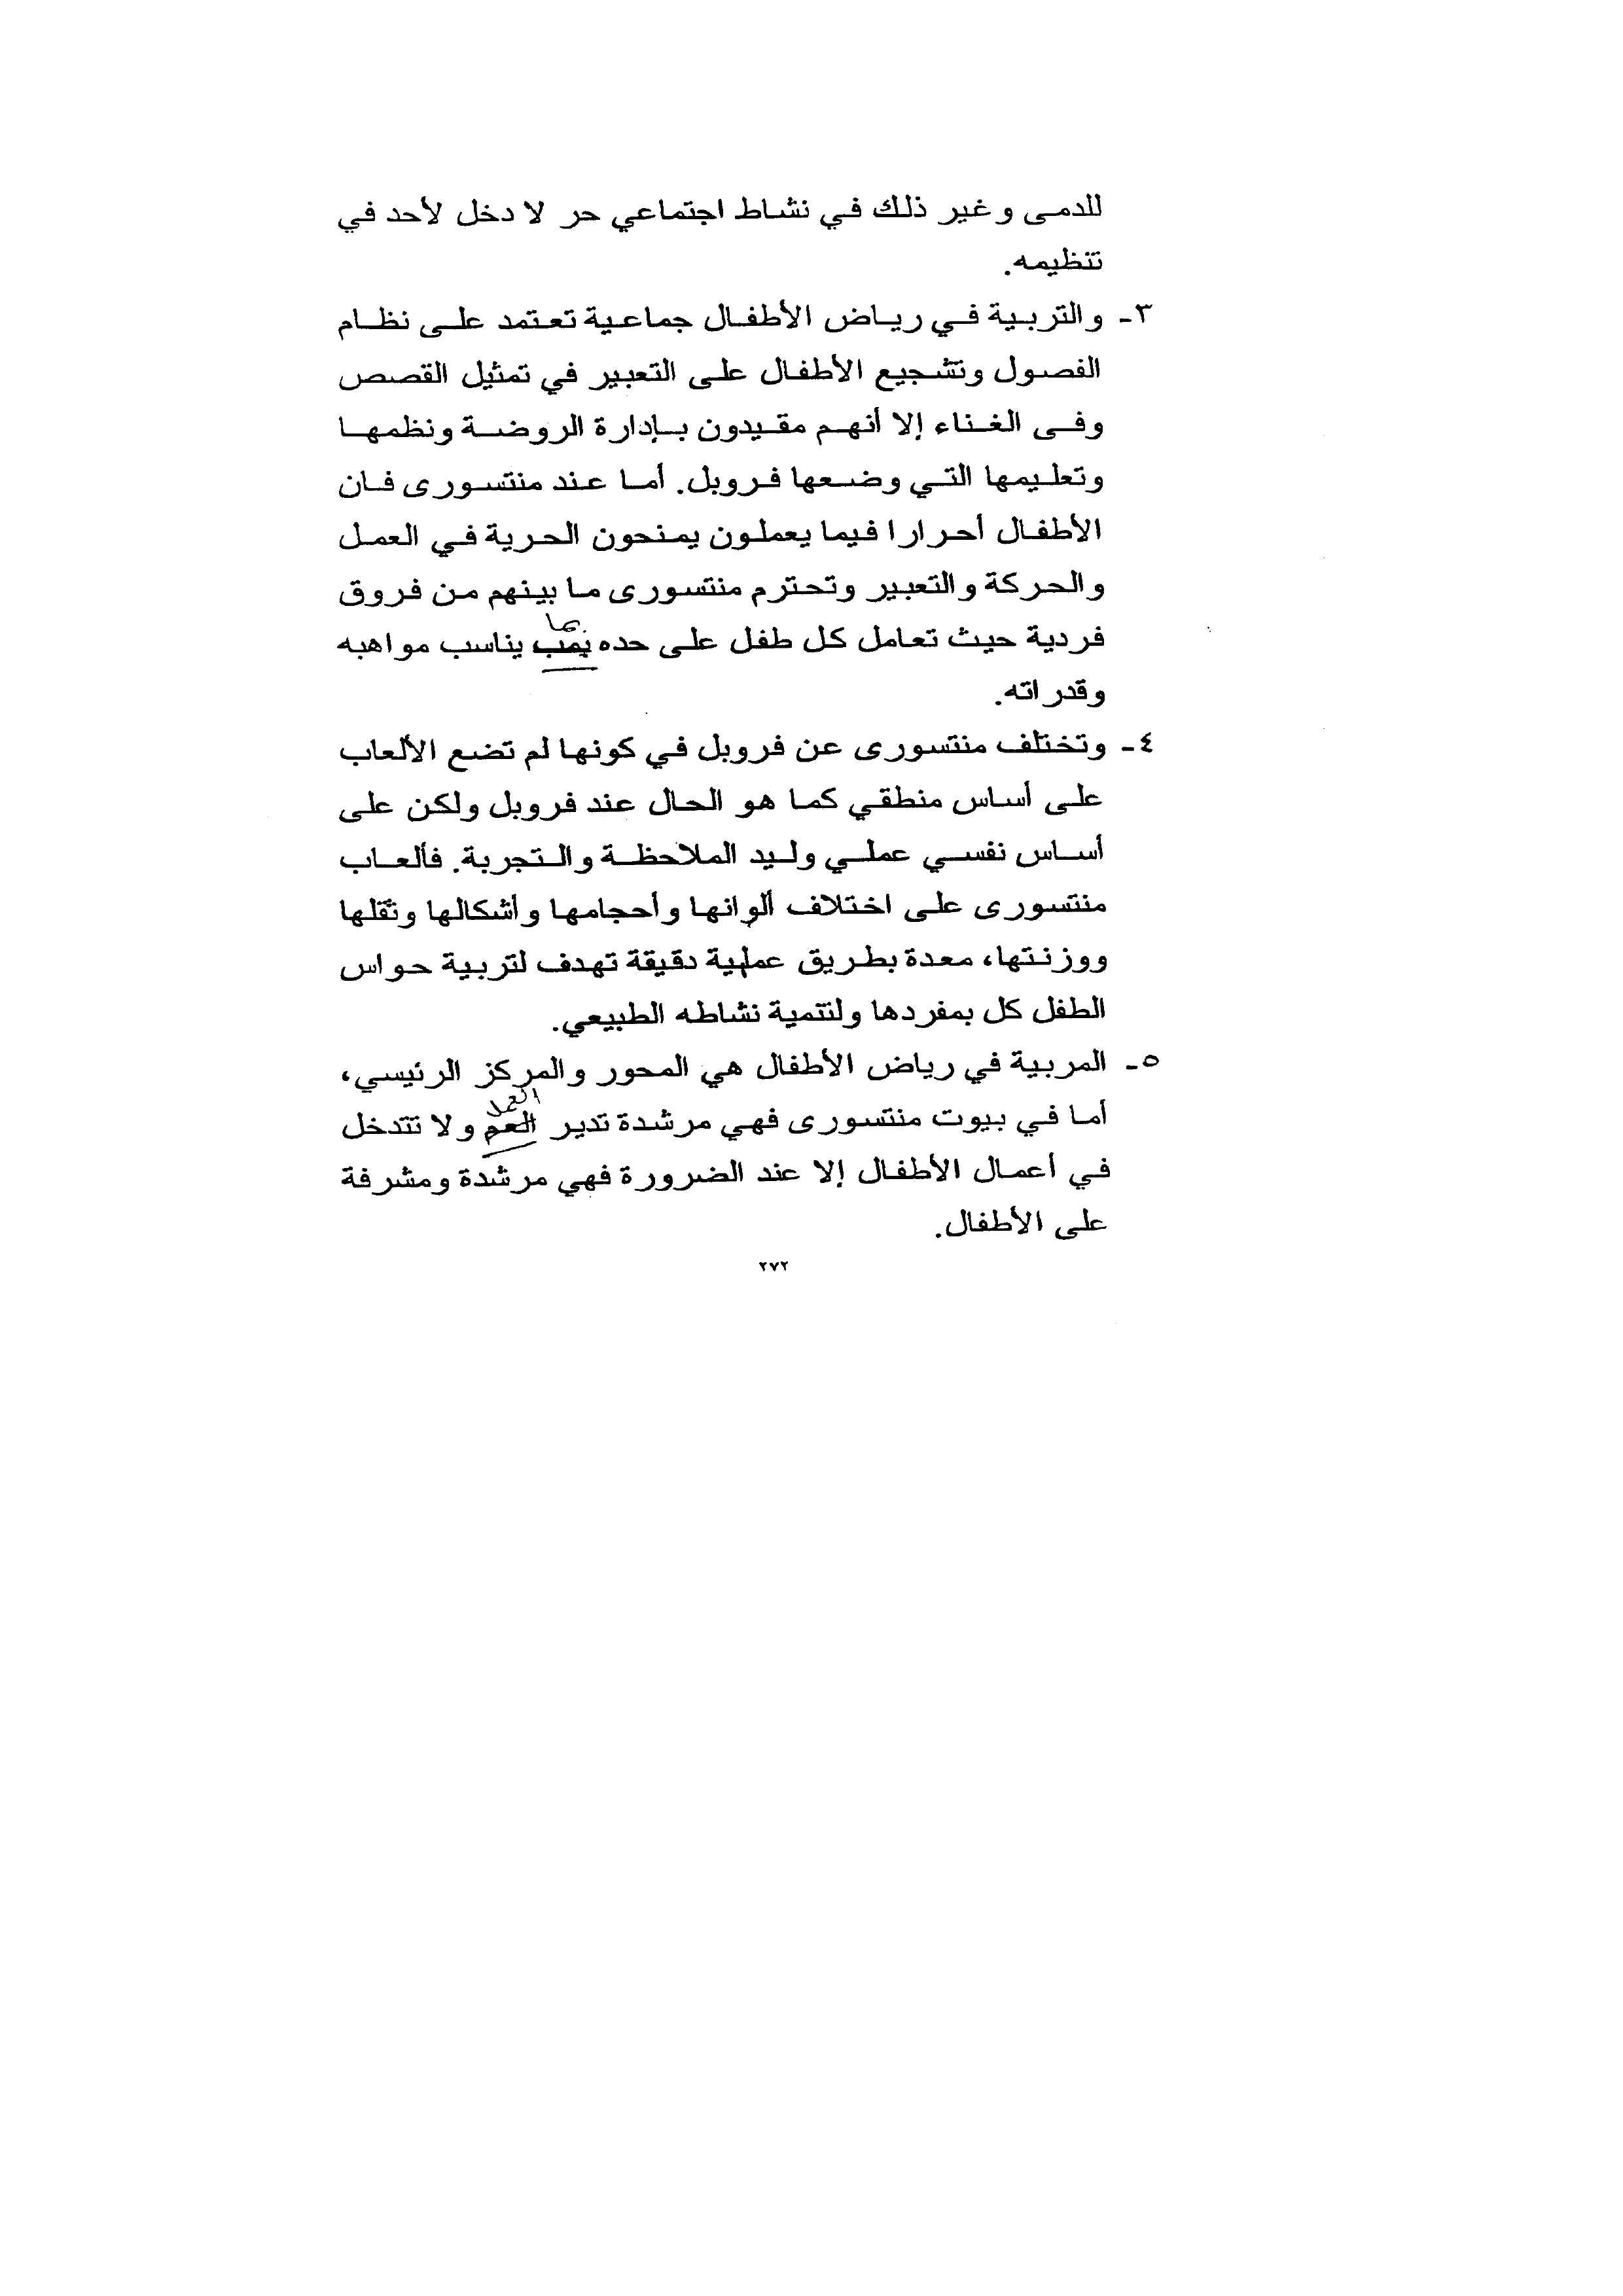 للدمى وغير ذلك في نشاط اجتماعي حر لا دخل لأحد في
تنظيمه.
٣- والتربية في رياض الأطفال جماعية تعتمد على نظام
الفصول وتشجيع الأطفال على التعبير في تمثيل القصص
وفى الغناء إلا أنهم مقيدون بإدارة الروضة ونظمها
وتعليمها التي وضعها فروبل. أما عند منتسورى فان
الأطفال أحرارا فيما يعملون يمنحون الحرية في العمل
والحركة والتعبير وتحترم منتسورى ما بينهم من فروق
بما
فردية حيث تعامل كل طفل على حده يمب يناسب مواهبه
وقدراته.
٤- وتختلف منتسورى عن فروبل في كونها لم تضع الألعاب
على أساس منطقي كما هو الحال عند فروبل ولكن على
أساس نفسي عملي وليد الملاحظة والتجربة. فألعاب
منتسورى على اختلاف ألوانها وأحجامها وأشكالها وثقلها
ووزنتها، معدة بطريق عملية دقيقة تهدف لتربية حواس
الطفل كل بمفردها ولتتمية نشاطه الطبيعي.
٥- المربية في رياض الأطفال هي المحور والمركز الرئيسي،
العمل
أما في بيوت منتسورى فهي مرشدة تدير العم ولا تتدخل
في أعمال الأطفال إلا عند الضرورة فهي مرشدة ومشرفة
على الأطفال.
٢٧٢